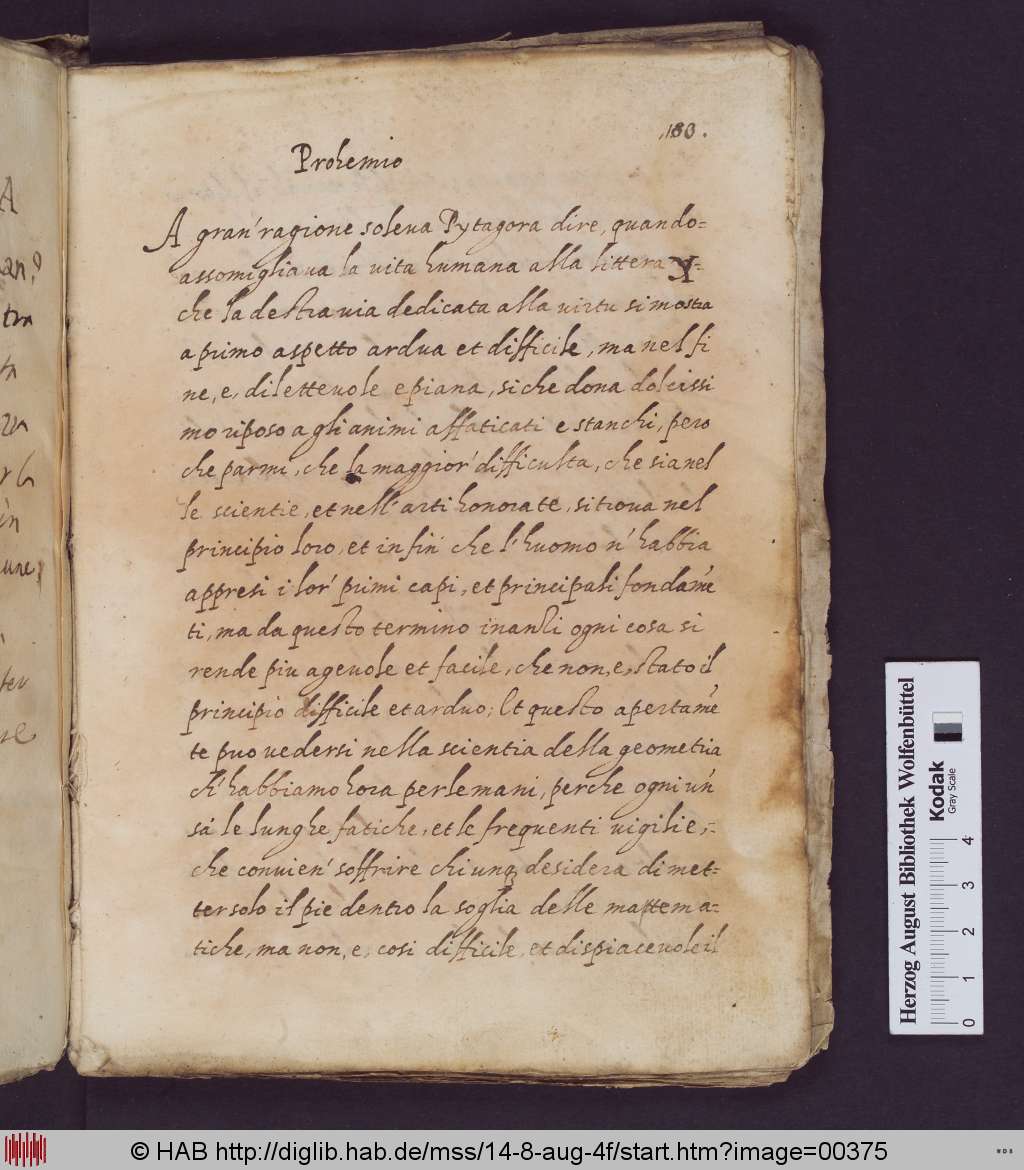 ,183.
Prohemio
A gran' ragione soleua Pytagora dire, quando=
assomigliaua la vita humana alla littera Y=
che la destra uia dedicata alla virtu si mostra
a primo aspetto ardua et difficile, ma nel fi
ne, e, dilettevole e piana, si che dona dolcissi
mo riposo a gli animi affaticati e stanchi, pero
che parmi, che la maggior' difficulta, che sia nel
le scientie, et nell' arti honorate, si troua nel
principio loro, et in fin' che l' huomo n' habbia
appresi i lor' primi capi, et principali fondamē
ti, ma da questo termino inanti ogni cosa si
rende piu agevole et facile, che non, e, stato il
principio difficile et arduo; Et questo apertamē
te puo vedersi nella scientia della geometria
ch' habbiamo hora per le mani, perche ogni un'
sa' le lunghe fatiche, et le frequenti vigilie,=
che convien' soffrire chiunq desidera di met=
ter solo il pie dentro la soglia delle mattema=
tiche, ma non, e, cosi difficile, et dispiacevole il
A
an,?
tra
ta
in
une,
Herzog August Bibliothek Wolfenbüttel
Kodak
Gray Scale
0 1 2 3 4
© HAB http://diglib.hab.de/mss/14-8-aug-4f/start.htm?image=00375